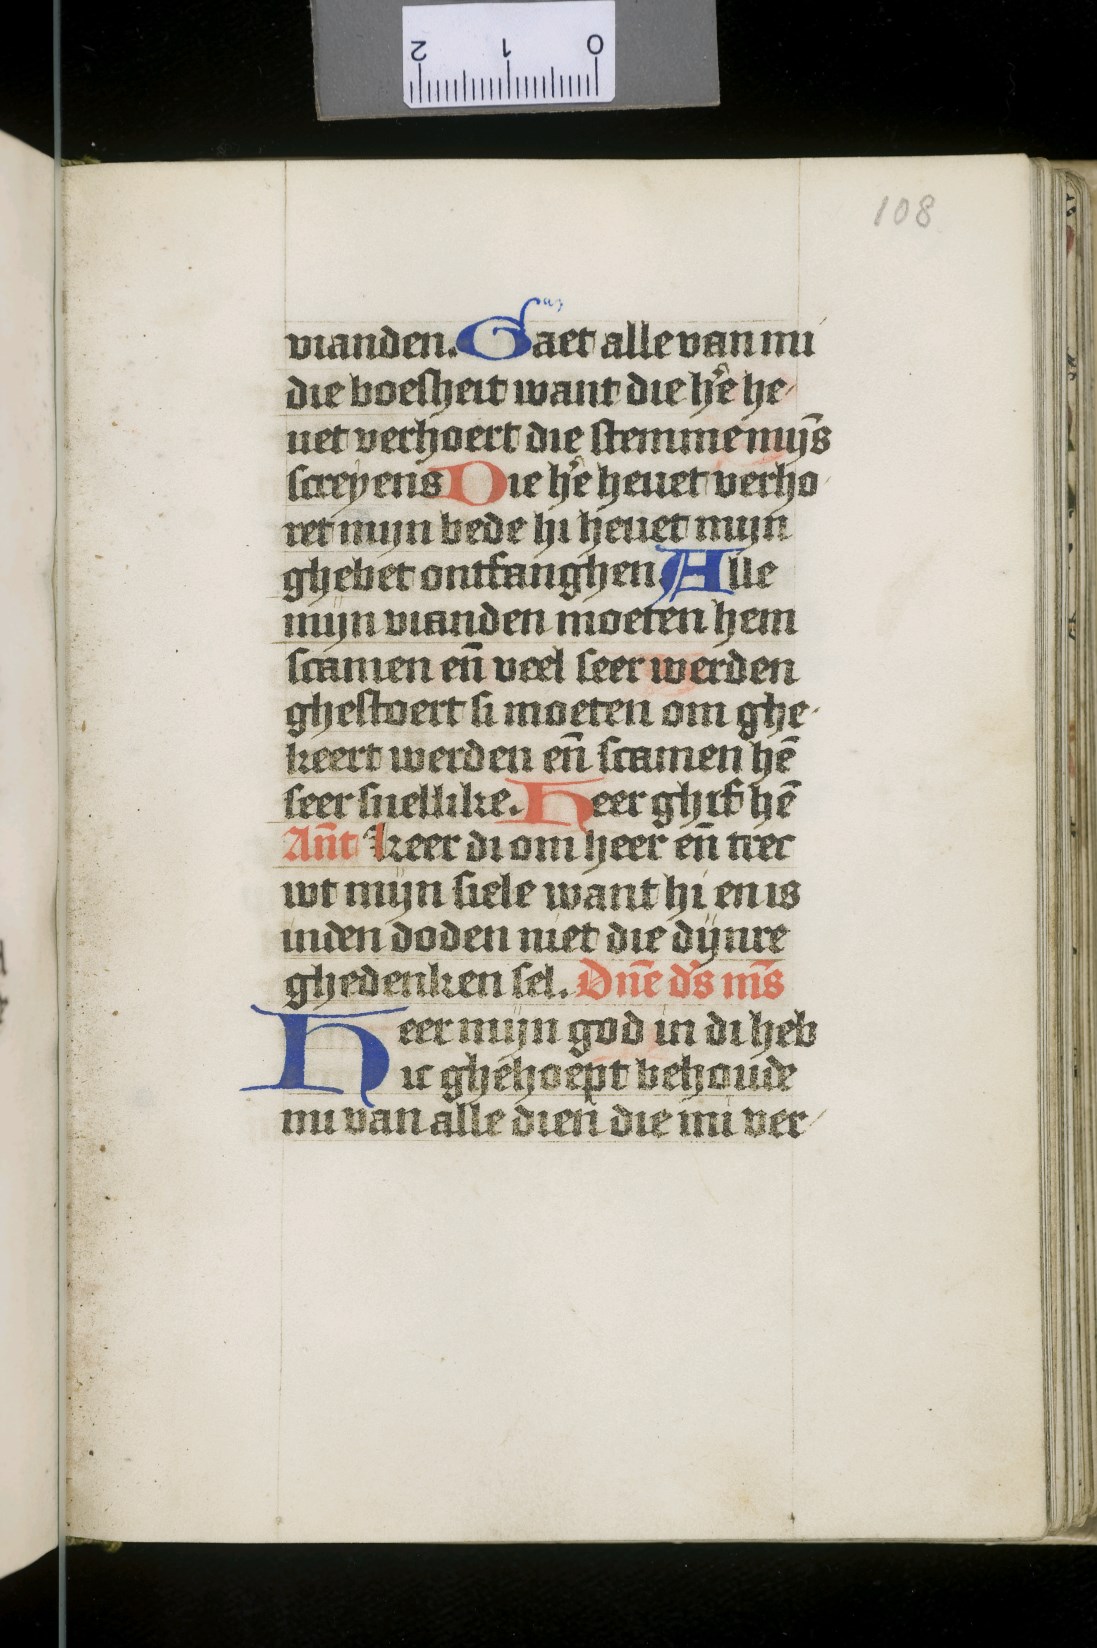 108
vianden. Gaet alle van mi
die boesheit want die he͛ he-
uet verhoert die stemme mijn̄s
screyens Die he͛ heuet verho
ret mijn bede hi heuet mijn
ghebet ontfanghen Alle
mijn vianden moeten hem
scamen en̄ veel seer werden
ghestoert si moeten om ghe-
keert werden en̄ scamen hē
seer snellike. Heer ghif hē
An̄t keer di om heer en̄ trec
wt mijn siele want hi en is
inden doden niet die dijnre
ghedenken sel. Dn̄e ds̄ ms̄
Heer mijn god in di heb
ic ghehoept behoude
mi van alle dien die mi ver-
2 1 0